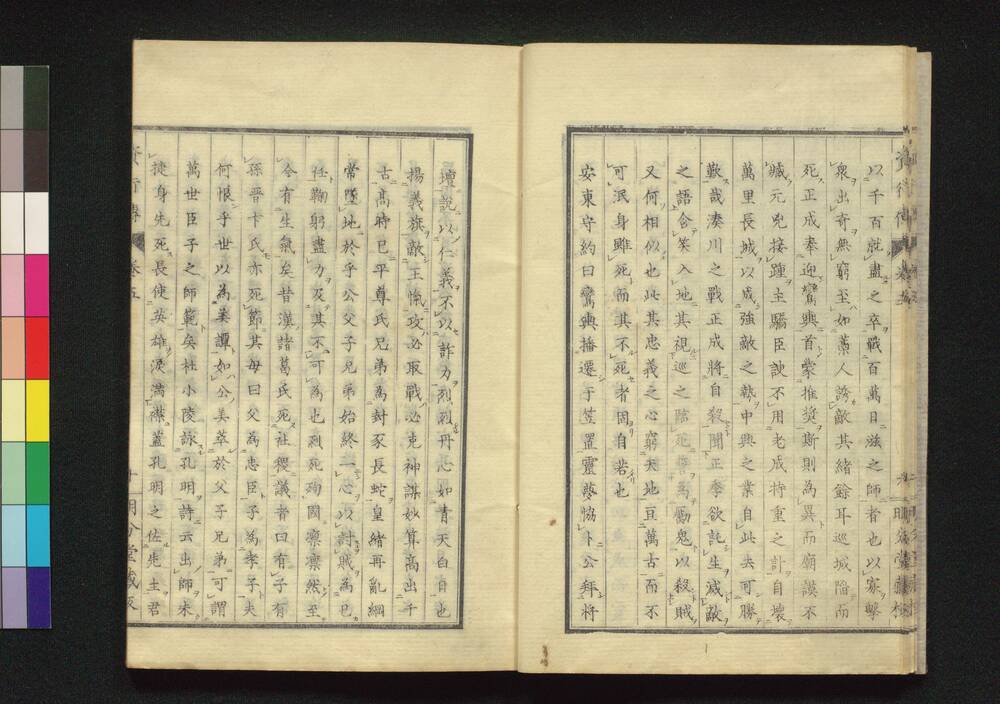 以千百就盡之卒戰百萬日滋之師者也以寡擊
衆出奇無窮至如藁人誇敵其緒餘耳巡城陷而
死正成奉迎鸞輿首蒙推奖斯則為異而廟謨不
臧元兇接踵主驕臣諛不用老成持重之計自壞
萬里長城以成強敵之勢中興之業自此去可勝
歎哉湊川之戰正成將自殺聞正季欲託生滅敵
之語含笑入地其視巡之臨死為厲鬼以殺賊
又何相似也此其忠義之心窮天地亘萬古而不
可泯身雖死而其不死者固自若也
安東守約曰鸞輿播遷于笠置靈夢協卜公拜將
壇說以仁義不以詐力烈烈丹心如青天白日也
揚義旗敵王愾攻必取戰必克神謀妙算高出千
古高時已平尊氏兄弟為封豕長蛇皇緒再亂綱
常墜地於乎公父子兄弟始終一心以討賊為已
任鞠躬盡力及其不可為也烈死殉國凛凛然至
今有生氣矣昔漢諸葛氏死社稷議者曰有子有
孫晋卞氏亦死節其母曰父為忠臣子為孝子夫
何恨乎世以為美譚如公美萃於父子兄弟可謂
萬世臣子之師範矣杜小陵詠孔明詩云出師未
捷身先死長使英雄淚滿襟蓋孔明之佐先主君
卷五